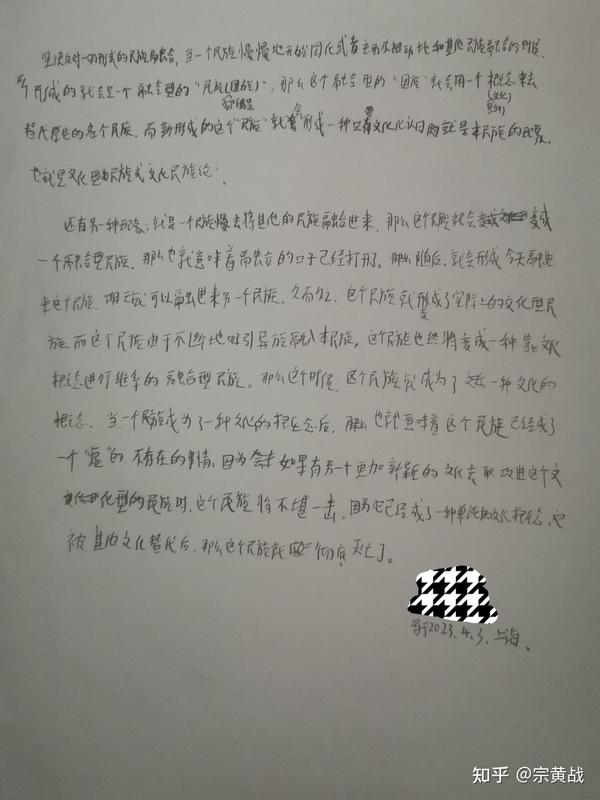 坚决反对一切形式的民族融合,当一个民族慢慢地开始同化或者主动及被动地和其他民族融合的时候,
所形成的就会是一个融合型的“民族(国族)”。那么这个融合型的“国族”就会用一个概念来去
替代原生的各个民族。而新形成的这个“民族”就会形成一种只有文化认同就是本民族的现象。
也就是文化型民族或文化民族论。
还有另一种现象,就是一个民族慢慢去将其他的民族融合进来,那么这个民族就会变成
一个融合型民族。那么也就意味着融合的口子已经打开了。那么随后,就会形成今天融进
来这个民族,明天就可以融进来另一个民族。久而久之,这个民族就形成了实际上的文化型民
族而这个民族由于不断地吸引异族融入本族,这个民族也终将变成一种靠文化
概念进行维系的融合型民族。那么这个时候,这个民族就成为了一种文化的
概念。当一个民族成为了一种文化的概念后,那么也就意味着这个民族已经成了
一个“虚”的不存在的事情。因为如果有另一个更加新颖的文化去取攻进这个文
化型的民族时,这个民族将不堪一击。因为它已经成了一种单纯的文化概念,它
被其他文化替代后,那么这个民族就彻底灭亡了。
写于2023.4.3.上海.
知乎 @宗黄战